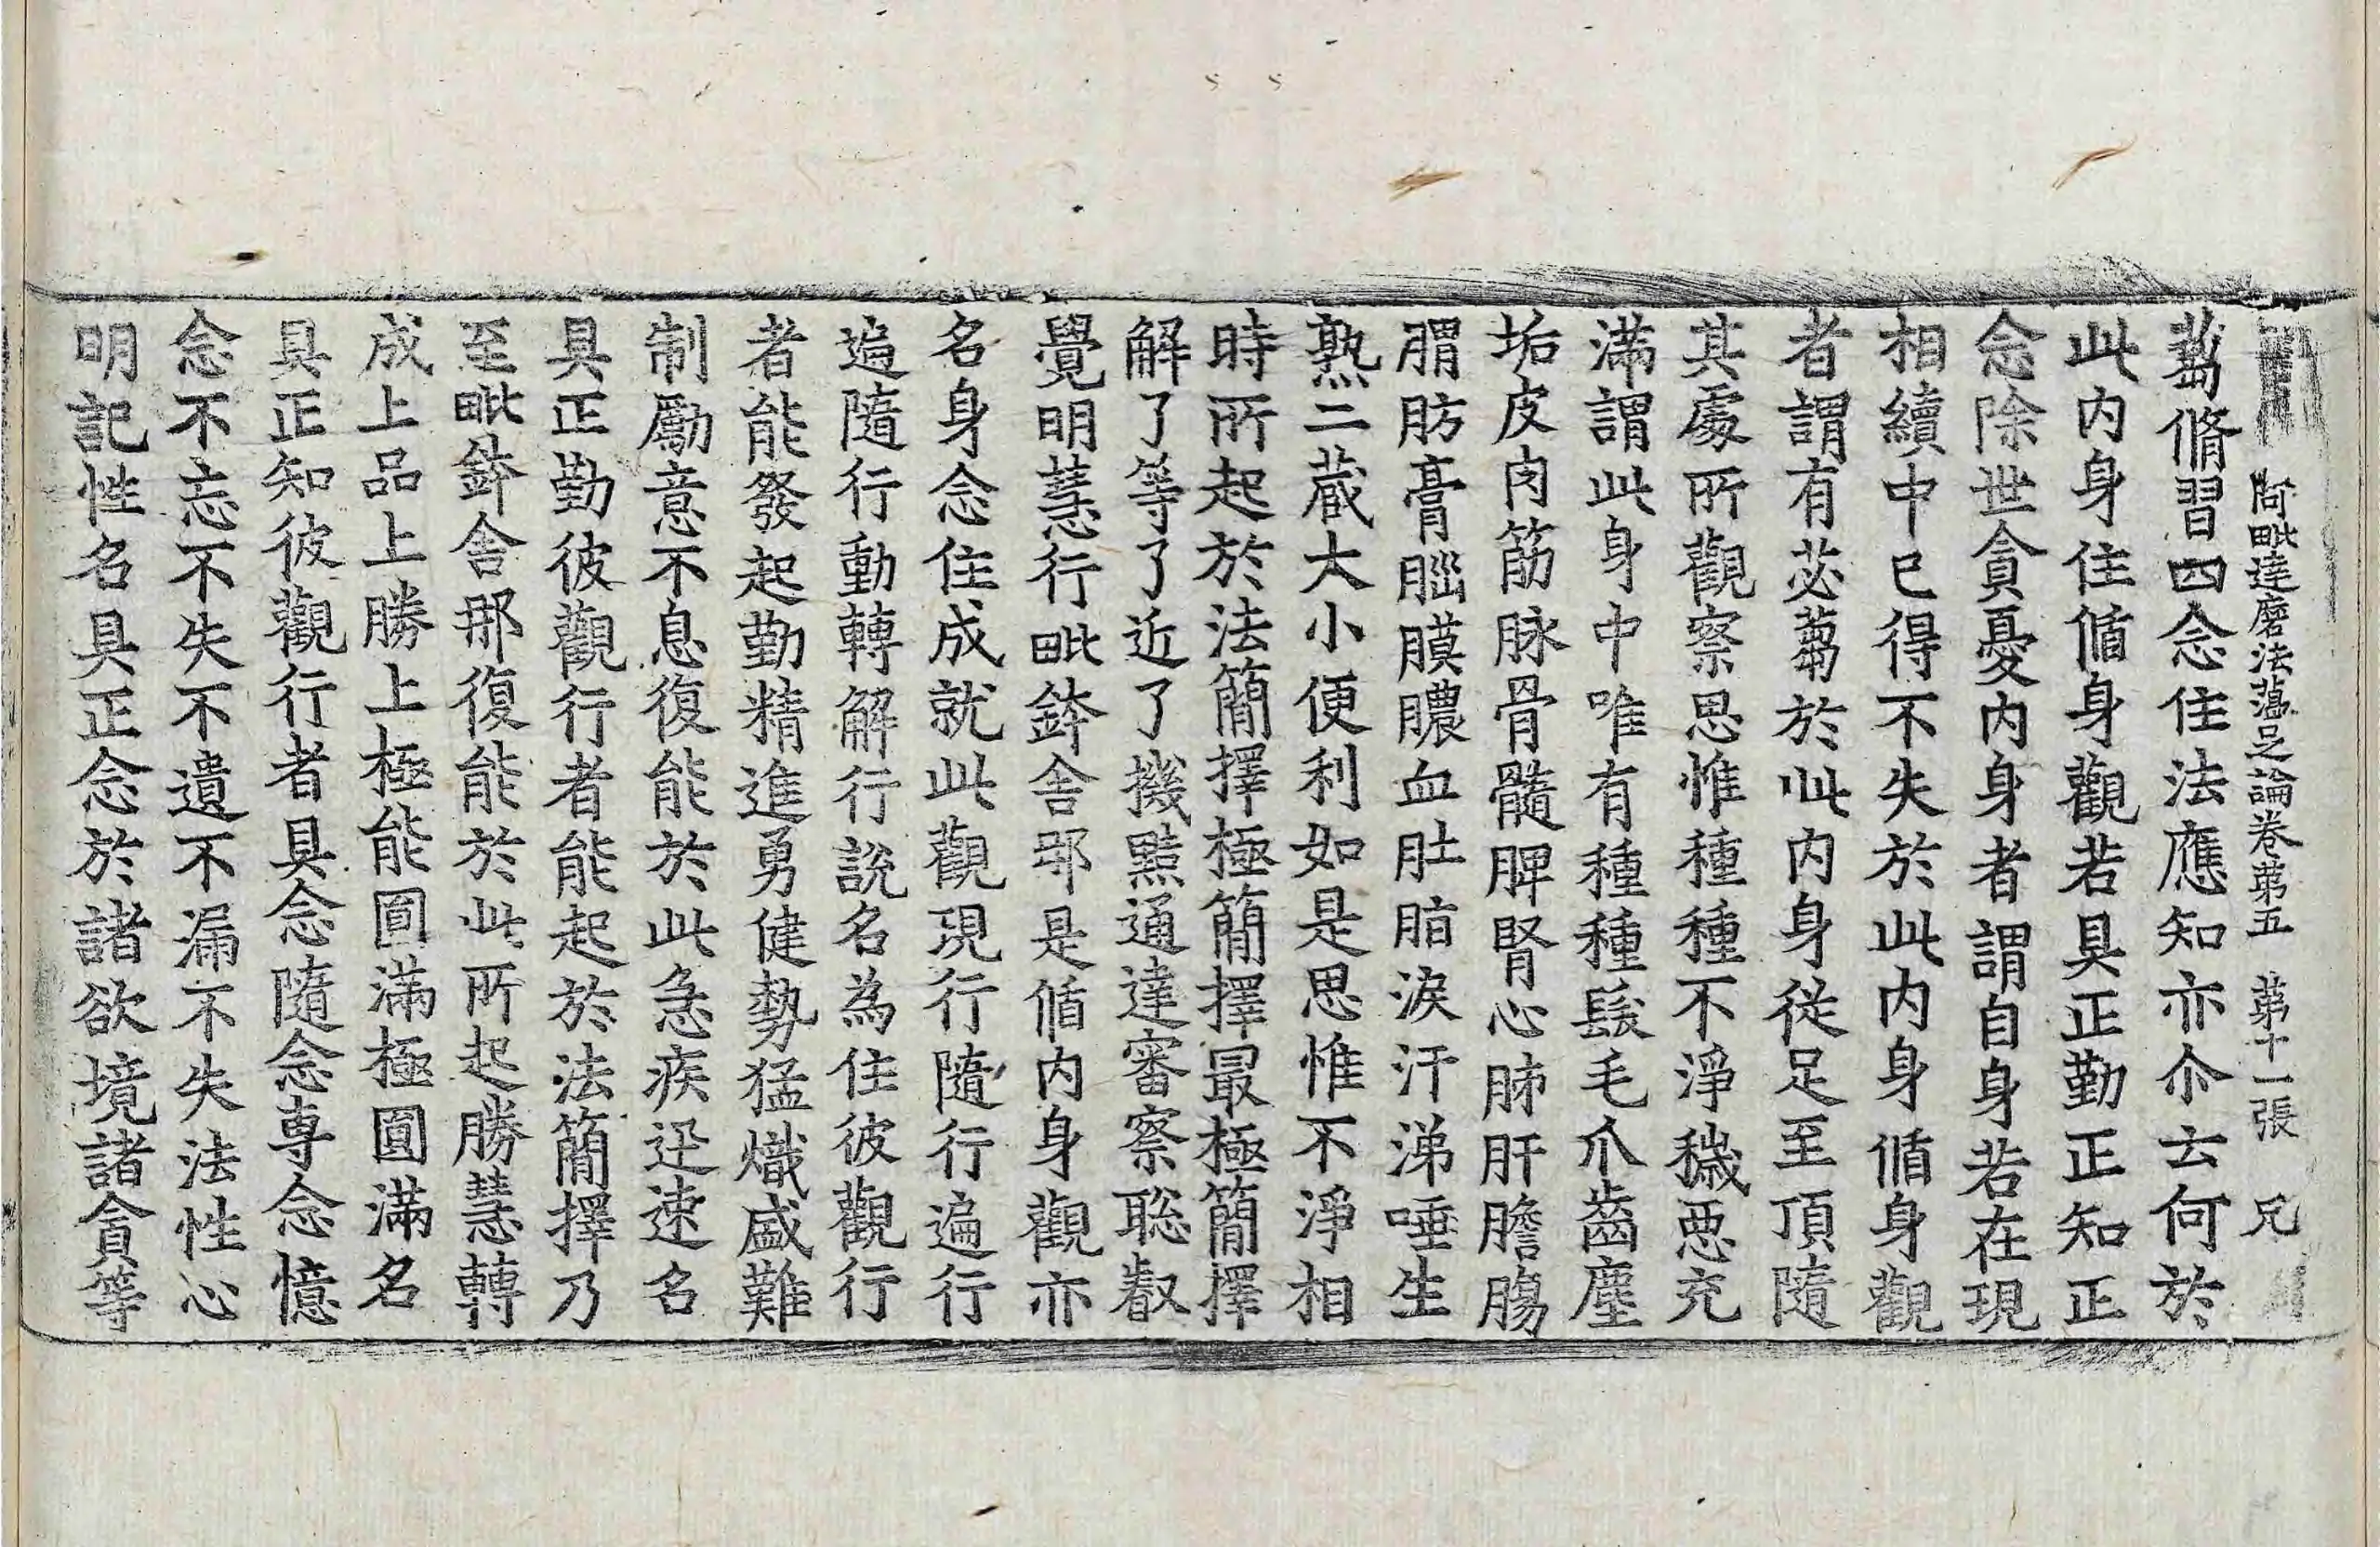 阿毗達磨法蘊足論卷苐五 苐十一張 兄
蒭脩習四念住法應知亦尒云何於
此内身住循身觀若具正勤正知正
念除世貪憂内身者謂自身若在現
相續中已得不失於此内身循身觀
者謂有苾蒭於此内身從足至頂隨
其處所觀察思惟種種不淨穢惡充
滿謂此身中唯有種種髮毛爪齒塵
垢皮肉筋脉骨髓脾腎心肺肝膽腸
胃肪膏腦膜膿血肚脂淚汗涕唾生
熟二藏大小便利如是思惟不淨相
時所起於法簡擇極簡擇最極簡擇
解了等了近了機黠通達審察聡叡
覺明慧行毗鉢舍那是循内身觀亦
名身念住成就此觀現行隨行遍行
遍隨行動轉解行說名為住彼觀行
者能發起勤精進勇健勢猛熾盛難
制勵意不息復能於此急疾迅速名
具正勤彼觀行者能起於法簡擇乃
至毗鉢舍那復能於此所起勝慧轉
成上品上勝上極能圓滿極圓滿名
具正知彼觀行者具念隨念専念憶
念不忘不失不遺不漏不失法性心
明記性名具正念於諸欲境諸貪等